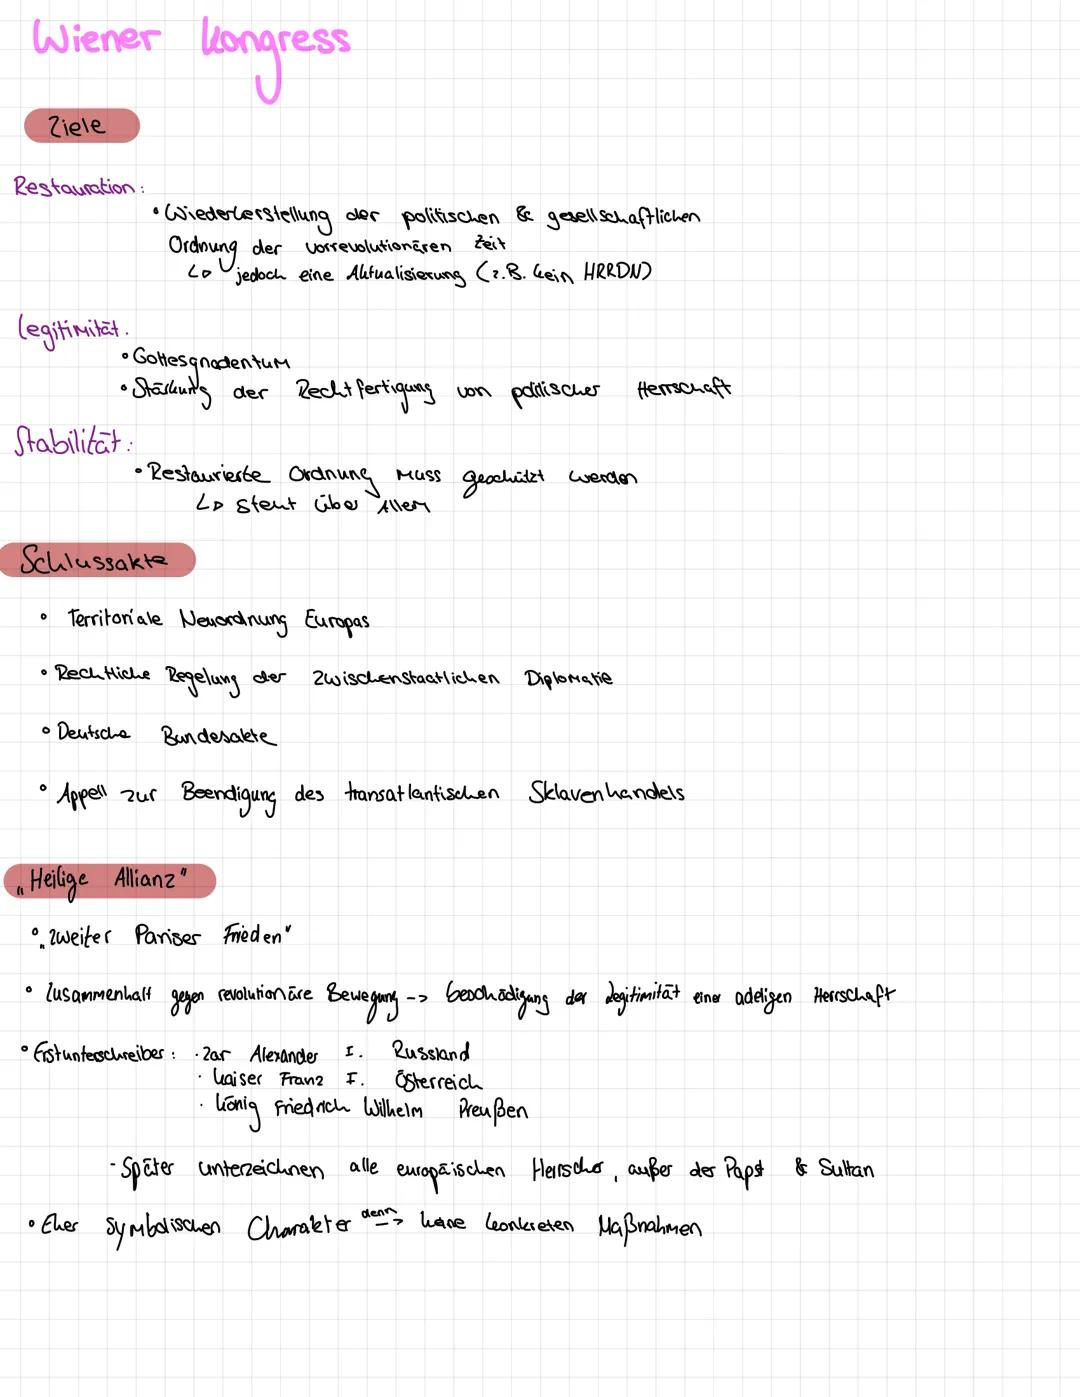 Wiener Kongress
Ziele
Restauration:
• Wiederherstellung der politischen & gesellschaftlichen
Ordnung der vorrevolutionären Zeit
↳ jedoch eine Aktualisierung (z.B. kein HRRDN)
Legitimität:
• Gottesgnadentum
• Stärkung der Rechtfertigung von politischer Herrschaft
Stabilität:
• Restaurierte Ordnung muss geschützt werden
↳ steht über Allem
Schlussakte
• Territoriale Neuordnung Europas
• Rechtliche Regelung der zwischenstaatlichen Diplomatie
• Deutsche Bundesakte
• Appell zur Beendigung des transatlantischen Sklavenhandels
„Heilige Allianz"
• „zweiter Pariser Frieden"
• Zusammenhalt gegen revolutionäre Bewegung -> beschädigung der Legitimität einer adeligen Herrschaft
• Erstunterschreiber: · Zar Alexander I. Russland
· Kaiser Franz I. Österreich
· König Friedrich Wilhelm Preußen
- Später unterzeichnen alle europäischen Herrscher, außer der Papst & Sultan
• Eher symbolischen Charakter denn --> keine konkreten Maßnahmen